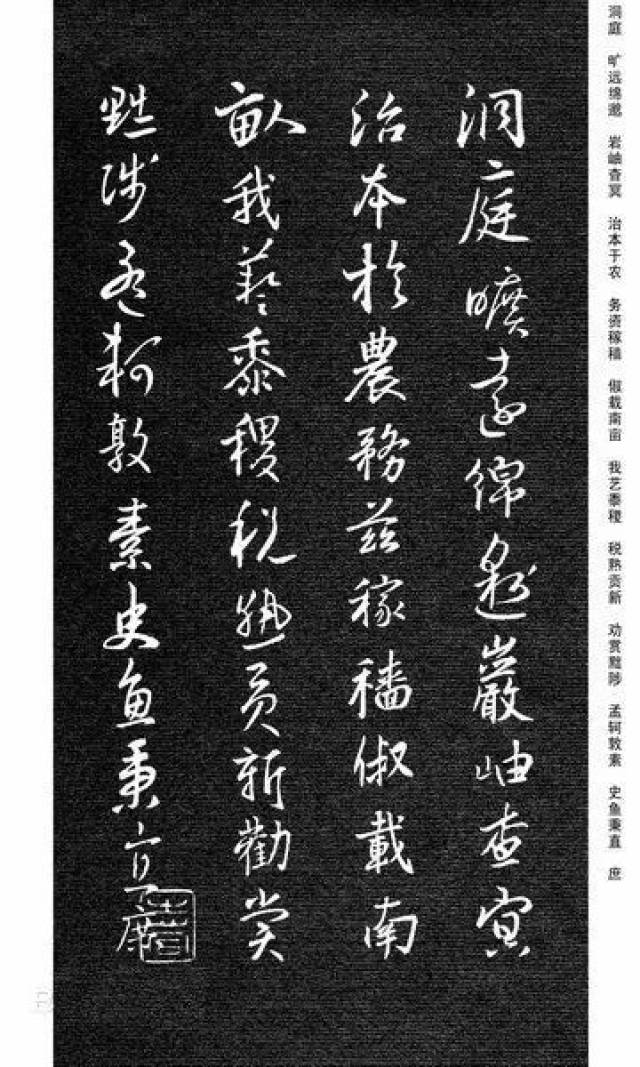 洞庭 旷远绵邈 岩岫杳冥 治本于农 务资稼穑 俶载南亩 我艺黍稷 税熟贡新 劝赏黜陟 孟轲敦素 史鱼秉直 庶
洞庭曠遠綿邈巖岫杳冥
治本於農務茲稼穡俶載南
畝我藝黍稷稅熟貢新勸賞
黜陟孟軻敦素史魚秉直庶